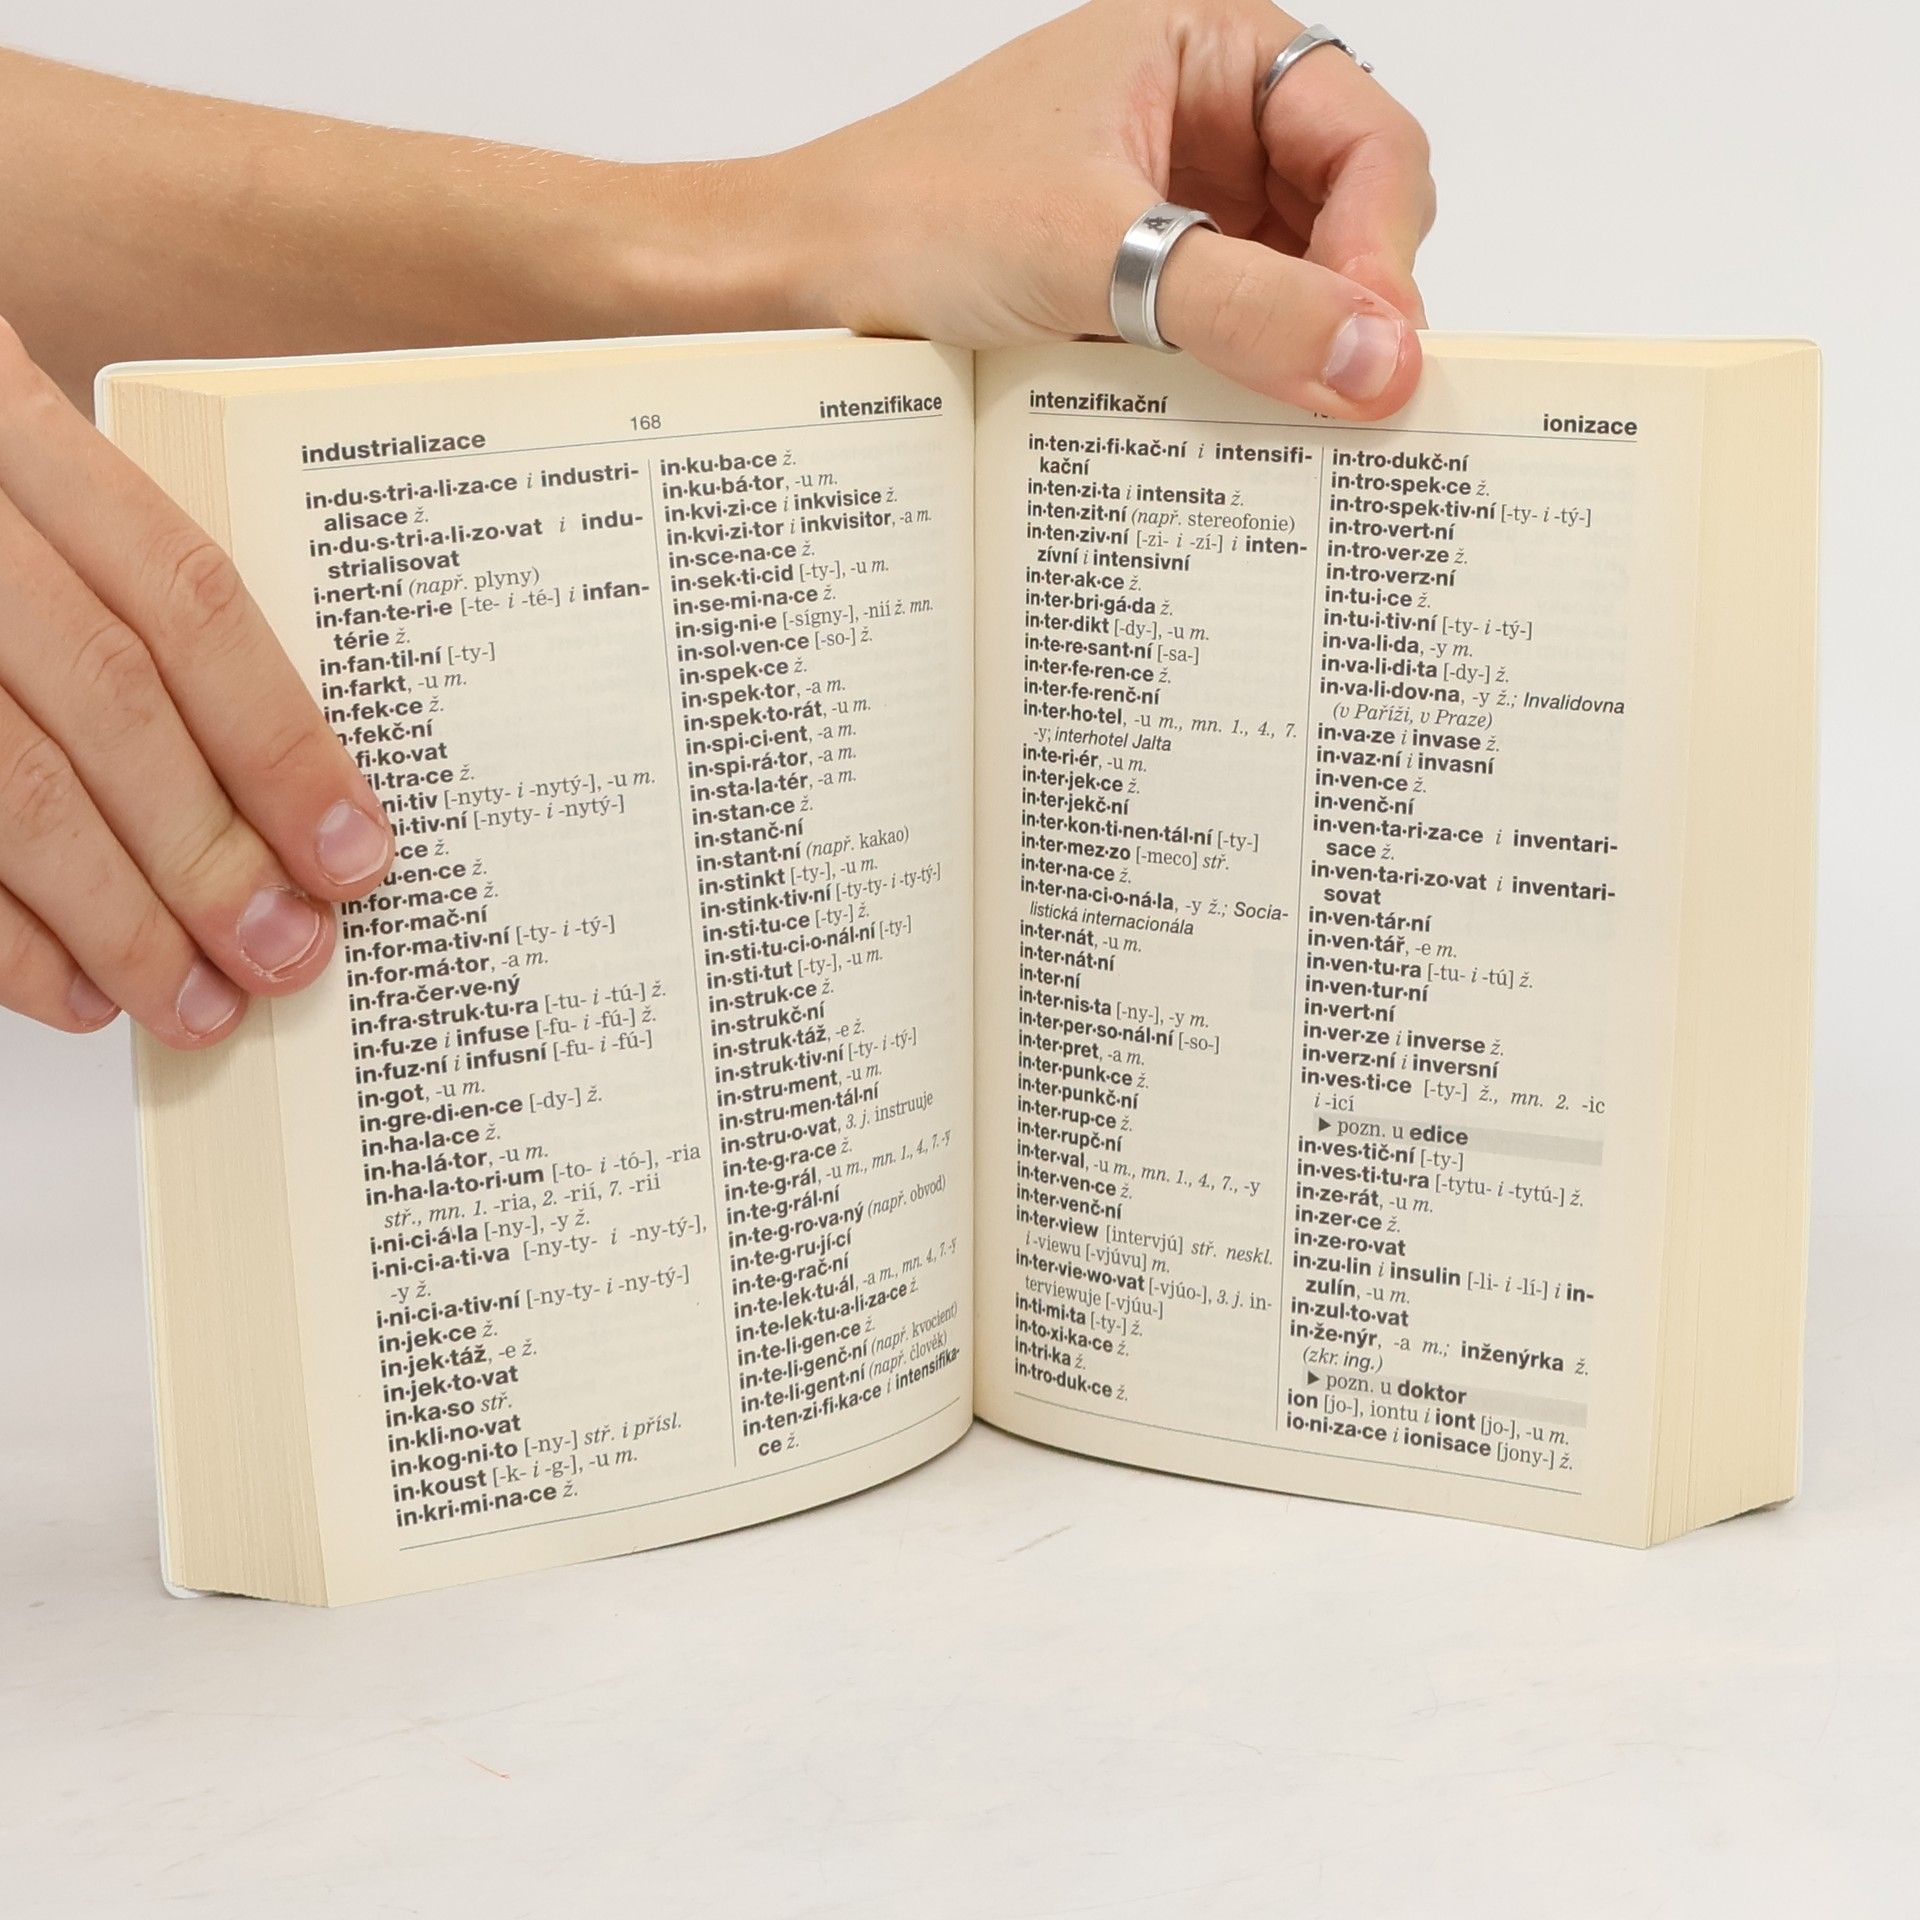 industrializace 168 intenzifikace
in·du·s·tri·a·li·za·ce i industri-
alisace ž.
in·du·s·tri·a·li·zo·vat i indu-
strialisovat
i·nert·ní (např. plyny)
in·fan·te·ri·e [-te- i -té-] i infan-
térie ž.
in·fan·til·ní [-ty-]
in·farkt, -u m.
in·fek·ce ž.
fekč·ní
fi·ko·vat
tra·ce ž.
ni·tiv [-nyty- i -nytý-], -u m.
tiv·ní [-nyty- i -nytý-]
ce ž.
en·ce ž.
in·for·ma·ce ž.
in·for·mač·ní
in·for·ma·tiv·ní [-ty- i -tý-]
in·for·má·tor, -a m.
in·fra·čer·ve·ný
in·fra·struk·tu·ra [-tu- i -tú-] ž.
in·fu·ze i infuse [-fu- i -fú-] ž.
in·fuz·ní i infusní [-fu- i -fú-]
in·got, -u m.
in·gre·di·en·ce [-dy-] ž.
in·ha·la·ce ž.
in·ha·lá·tor, -u m.
in·ha·la·to·ri·um [-to- i -tó-], -ria
stř., mn. 1. -ria, 2. -rií, 7. -rii
i·ni·ci·á·la [-ny-], -y ž.
i·ni·ci·a·ti·va [-ny-ty- i -ny-tý-],
-y ž.
i·ni·ci·a·tiv·ní [-ny-ty- i -ny-tý-]
in·jek·ce ž.
in·jek·táž, -e ž.
in·jek·to·vat
in·ka·so stř.
in·kli·no·vat
in·kog·ni·to [-ny-] stř. i přísl.
in·koust [-k- i -g-], -u m.
in·kri·mi·na·ce ž.
in·ku·ba·ce ž.
in·ku·bá·tor, -u m.
in·kvi·zi·ce i inkvisice ž.
in·kvi·zi·tor i inkvisitor, -a m.
in·sce·na·ce ž.
in·sek·ti·cid [-ty-], -u m.
in·se·mi·na·ce ž.
in·sig·ni·e [-sígny-], -nií ž. mn.
in·sol·ven·ce [-so-] ž.
in·spek·ce ž.
in·spek·tor, -a m.
in·spek·to·rát, -u m.
in·spi·ci·ent, -a m.
in·spi·rá·tor, -a m.
in·sta·la·tér, -a m.
in·stan·ce ž.
in·stanč·ní
in·stant·ní (např. kakao)
in·stinkt [-ty-], -u m.
in·stink·tiv·ní [-ty-ty- i -ty-tý-]
in·sti·tu·ce [-ty-] ž.
in·sti·tu·ci·o·nál·ní [-ty-]
in·sti·tut [-ty-], -u m.
in·struk·ce ž.
in·strukč·ní
in·struk·táž, -e ž.
in·struk·tiv·ní [-ty- i -tý-]
in·stru·ment, -u m.
in·stru·men·tál·ní
in·stru·o·vat, 3. j. instruuje
in·te·g·ra·ce ž.
in·te·g·rál, -u m., mn. 1., 4., 7. -y
in·te·g·rál·ní
in·te·g·ro·va·ný (např. obvod)
in·te·g·ru·jí·cí
in·te·g·rač·ní
in·te·lek·tu·ál, -a m., mn. 4., 7. -y
in·te·lek·tu·a·li·za·ce ž.
in·te·li·gen·ce ž.
in·te·li·genč·ní (např. kvocient)
in·te·li·gent·ní (např. člověk)
in·ten·zi·fi·ka·ce i intensifika-
ce ž.
intenzifikační ionizace
in·ten·zi·fi·kač·ní i intensifi-
kační
in·ten·zi·ta i intensita ž.
in·ten·zit·ní (např. stereofonie)
in·ten·ziv·ní [-zi- i -zí-] i inten-
zívní i intensivní
in·ter·ak·ce ž.
in·ter·bri·gá·da ž.
in·ter·dikt [-dy-], -u m.
in·te·re·sant·ní [-sa-]
in·ter·fe·ren·ce ž.
in·ter·fe·renč·ní
in·ter·ho·tel, -u m., mn. 1., 4., 7.
-y; interhotel Jalta
in·te·ri·ér, -u m.
in·ter·jek·ce ž.
in·ter·jekč·ní
in·ter·kon·ti·nen·tál·ní [-ty-]
in·ter·mez·zo [-meco] stř.
in·ter·na·ce ž.
in·ter·na·ci·o·ná·la, -y ž.; Socia-
listická internacionála
in·ter·nát, -u m.
in·ter·nát·ní
in·ter·ní
in·ter·nis·ta [-ny-], -y m.
in·ter·per·so·nál·ní [-so-]
in·ter·pret, -a m.
in·ter·punk·ce ž.
in·ter·punkč·ní
in·ter·rup·ce ž.
in·ter·rupč·ní
in·ter·val, -u m., mn. 1., 4., 7., -y
in·ter·ven·ce ž.
in·ter·venč·ní
in·ter·view [intervjú] stř. neskl.
i -viewu [-vjúvu] m.
in·ter·vie·wo·vat [-vjúo-], 3. j. in-
terviewuje [-vjúu-]
in·ti·mi·ta [-ty-] ž.
in·to·xi·ka·ce ž.
in·tri·ka ž.
in·tro·duk·ce ž.
in·tro·dukč·ní
in·tro·spek·ce ž.
in·tro·spek·tiv·ní [-ty- i -tý-]
in·tro·vert·ní
in·tro·ver·ze ž.
in·tro·verz·ní
in·tu·i·ce ž.
in·tu·i·tiv·ní [-ty- i -tý-]
in·va·li·da, -y m.
in·va·li·di·ta [-dy-] ž.
in·va·li·dov·na, -y ž.; Invalidovna
(v Paříži, v Praze)
in·va·ze i invase ž.
in·vaz·ní i invasní
in·ven·ce ž.
in·venč·ní
in·ven·ta·ri·za·ce i inventari-
sace ž.
in·ven·ta·ri·zo·vat i inventari-
sovat
in·ven·tár·ní
in·ven·tář, -e m.
in·ven·tu·ra [-tu- i -tú] ž.
in·ven·tur·ní
in·vert·ní
in·ver·ze i inverse ž.
in·verz·ní i inversní
in·ves·ti·ce [-ty-] ž., mn. 2. -ic
i -icí
▶ pozn. u edice
in·ves·tič·ní [-ty-]
in·ves·ti·tu·ra [-tytu- i -tytú-] ž.
in·ze·rát, -u m.
in·zer·ce ž.
in·ze·ro·vat
in·zu·lin i insulin [-li- i -lí-] i in-
zulín, -u m.
in·zul·to·vat
in·že·nýr, -a m.; inženýrka ž.
(zkr. ing.)
▶ pozn. u doktor
ion [jo-], iontu i iont [jo-], -u m.
io·ni·za·ce i ionisace [jony-] ž.